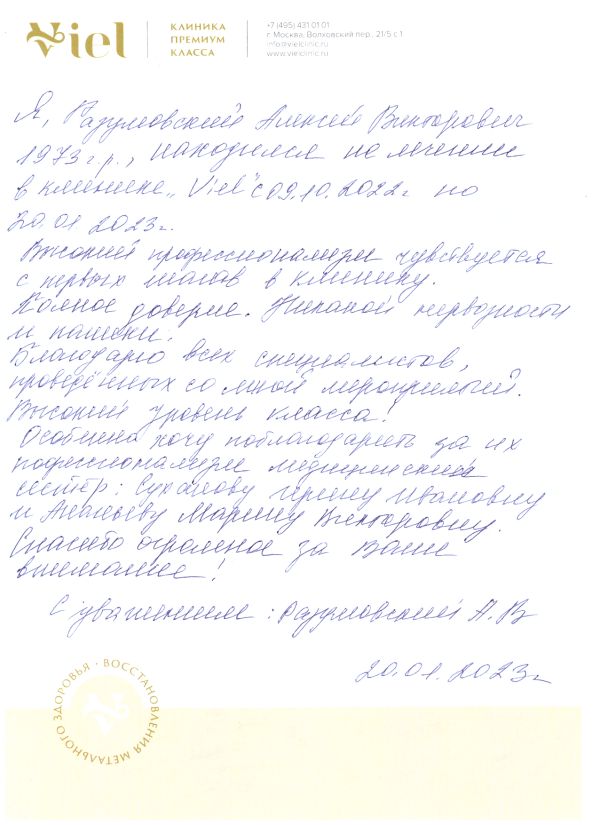 Viel
КЛИНИКА
ПРЕМИУМ
КЛАССА
+7 (495) 431 01 01
г. Москва, Волховский пер., 21/5 с 1
info@vielclinic.ru
www.vielclinic.ru
Я, Разумовский Алексей Викторович
1973 г.р., находился на лечении
в клинике „Viel" с 09.10.2022г по
20.01 2023г.
Высокий профессионализм чувствуется
с первых шагов в клинику.
Полное доверие. Никакой нервозности
и паники.
Благодарю всех специалистов,
проведённых со мной мероприятий.
Высокий уровень класса!
Особенно хочу поблагодарить за их
пофессионализм медицинских
сестёр: Суханову Ирину Ивановну
и Ананьеву Марину Викторовну.
Спасибо огромное за Ваше
внимание!
С уважением: Разумовский А.В
20.01.2023г
ВОССТАНОВЛЕНИЯ МЕТАЛЬНОГО ЗДОРОВЬЯ ·